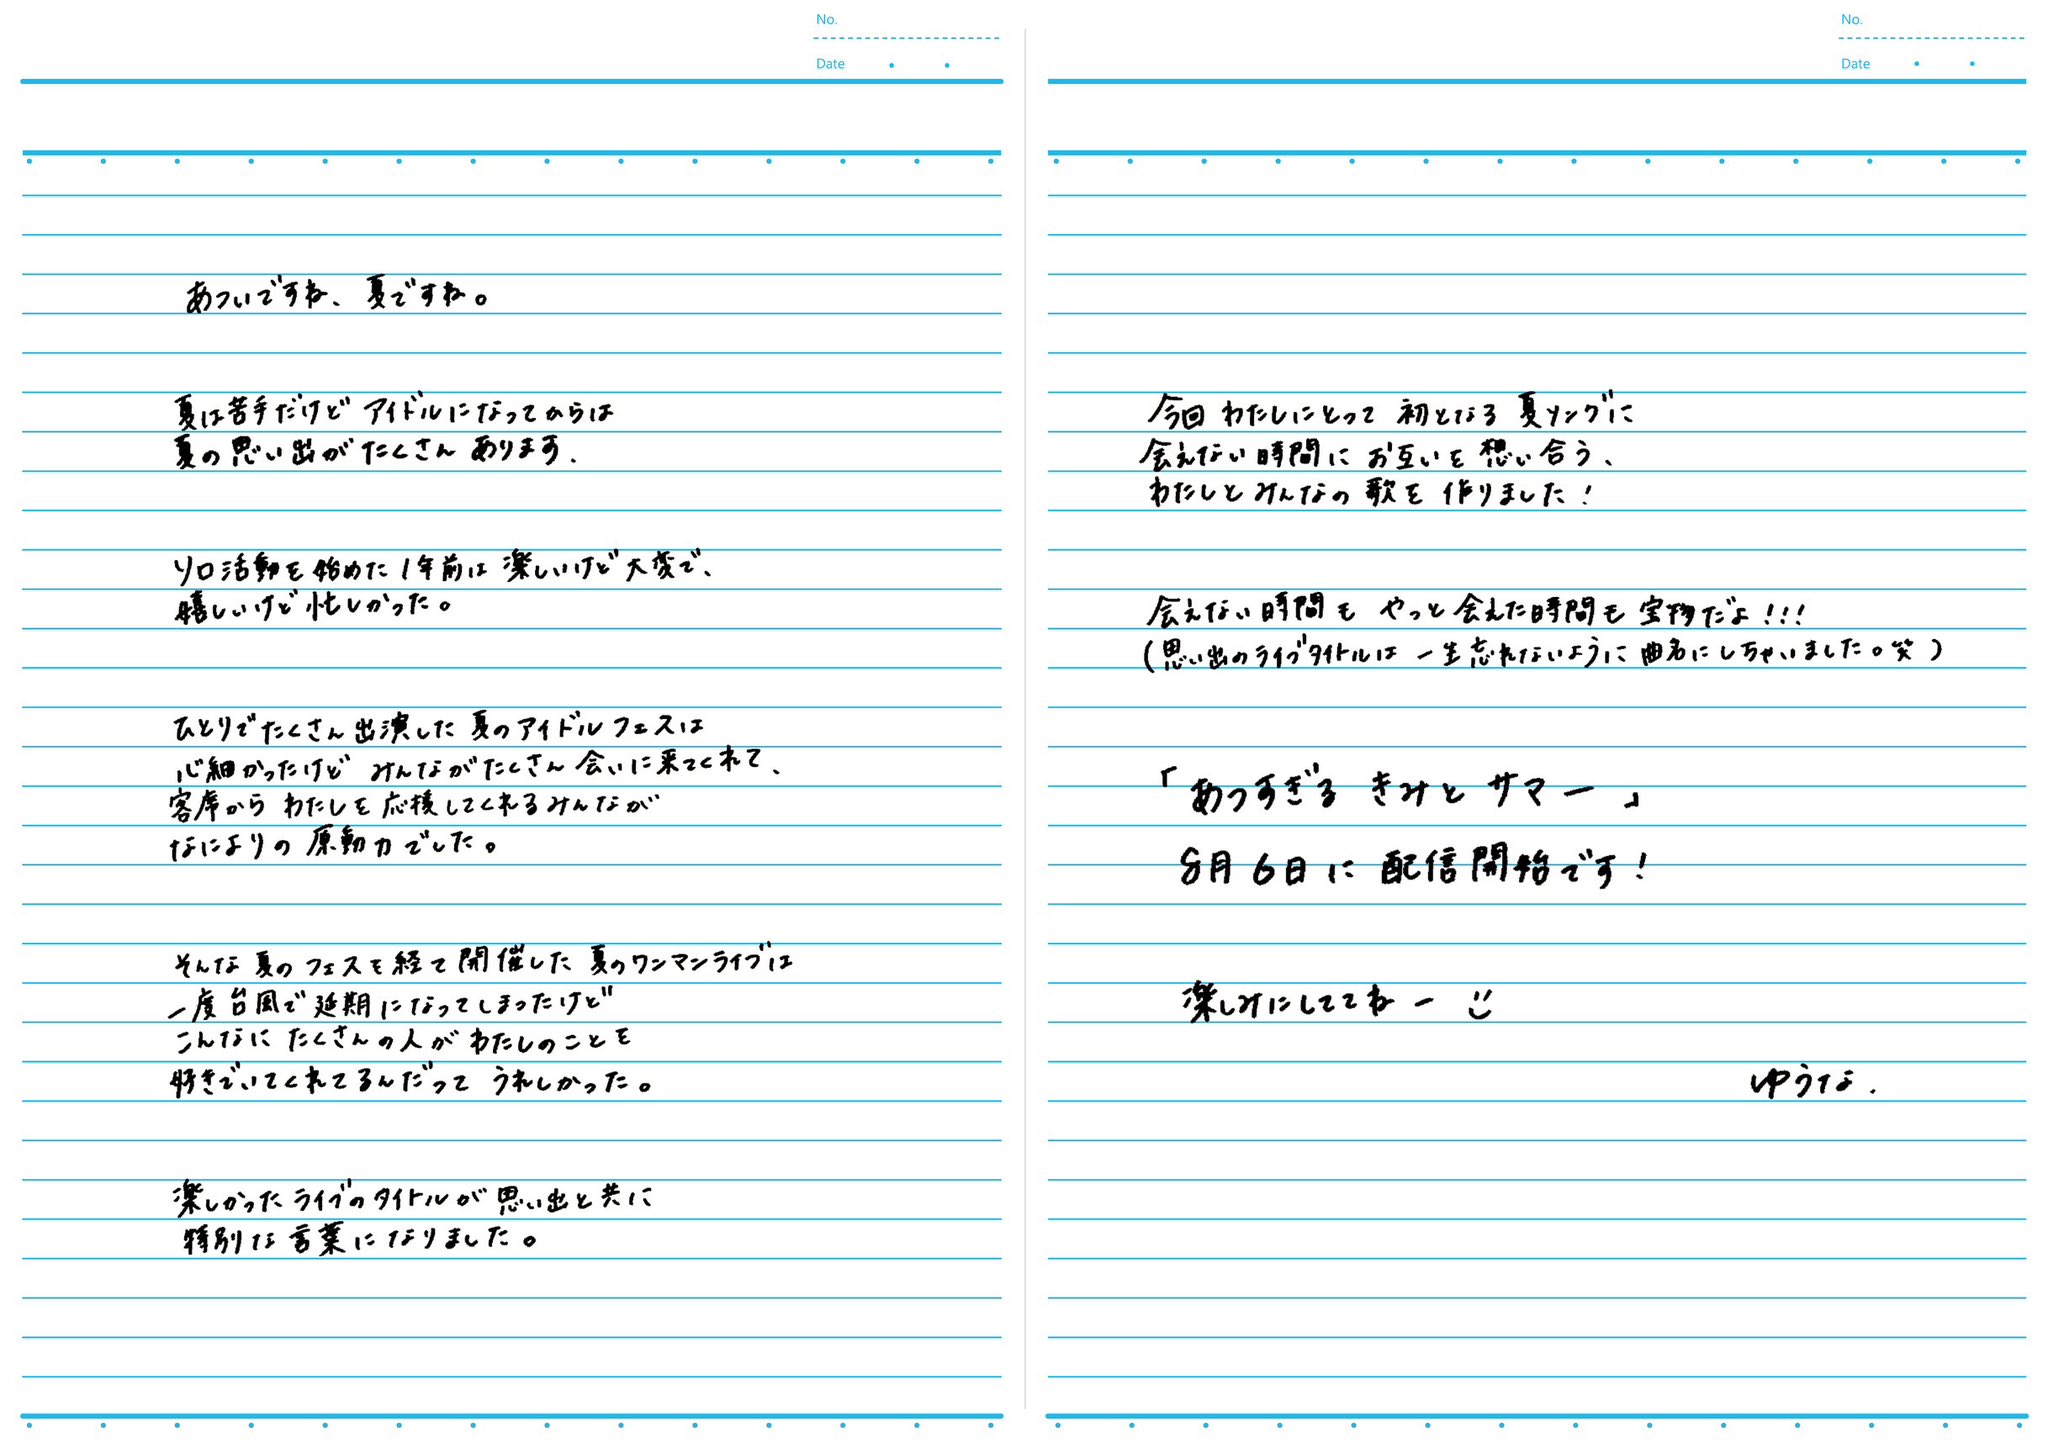 No.
Date
あついですね、夏ですね。
夏は苦手だけど アイドルになってからは
夏の思い出がたくさん あります、
ソロ活動を始めた1年前は 楽しいけど大変で、
嬉しいけど忙しかった。
ひとりでたくさん出演した 夏のアイドルフェスは
心細かったけど みんながたくさん 会いに来てくれて、
客席から わたしを応援してくれるみんなが
なによりの 原動力でした。
そんな 夏のフェスを経て開催した 夏のワンマンライブは
一度台風で延期になってしまったけど
こんなに たくさんの人が わたしのことを
好きでいてくれてるんだって うれしかった。
楽しかったライブのタイトルが思い出と共に
特別な言葉になりました。
No.
Date
今回 わたしにとって 初となる 夏ソングに
会えない時間に お互いを 想い合う、
わたしとみんなの 歌を 作りました!
会えない時間も やっと会えた時間も 宝物だよ!!!
(思い出のライブタイトルは 一生忘れないように 曲名にしちゃいました。笑)
「あつすぎる きみと サマー」
8月6日に 配信開始です!
楽しみにしててねー
ゆうな.